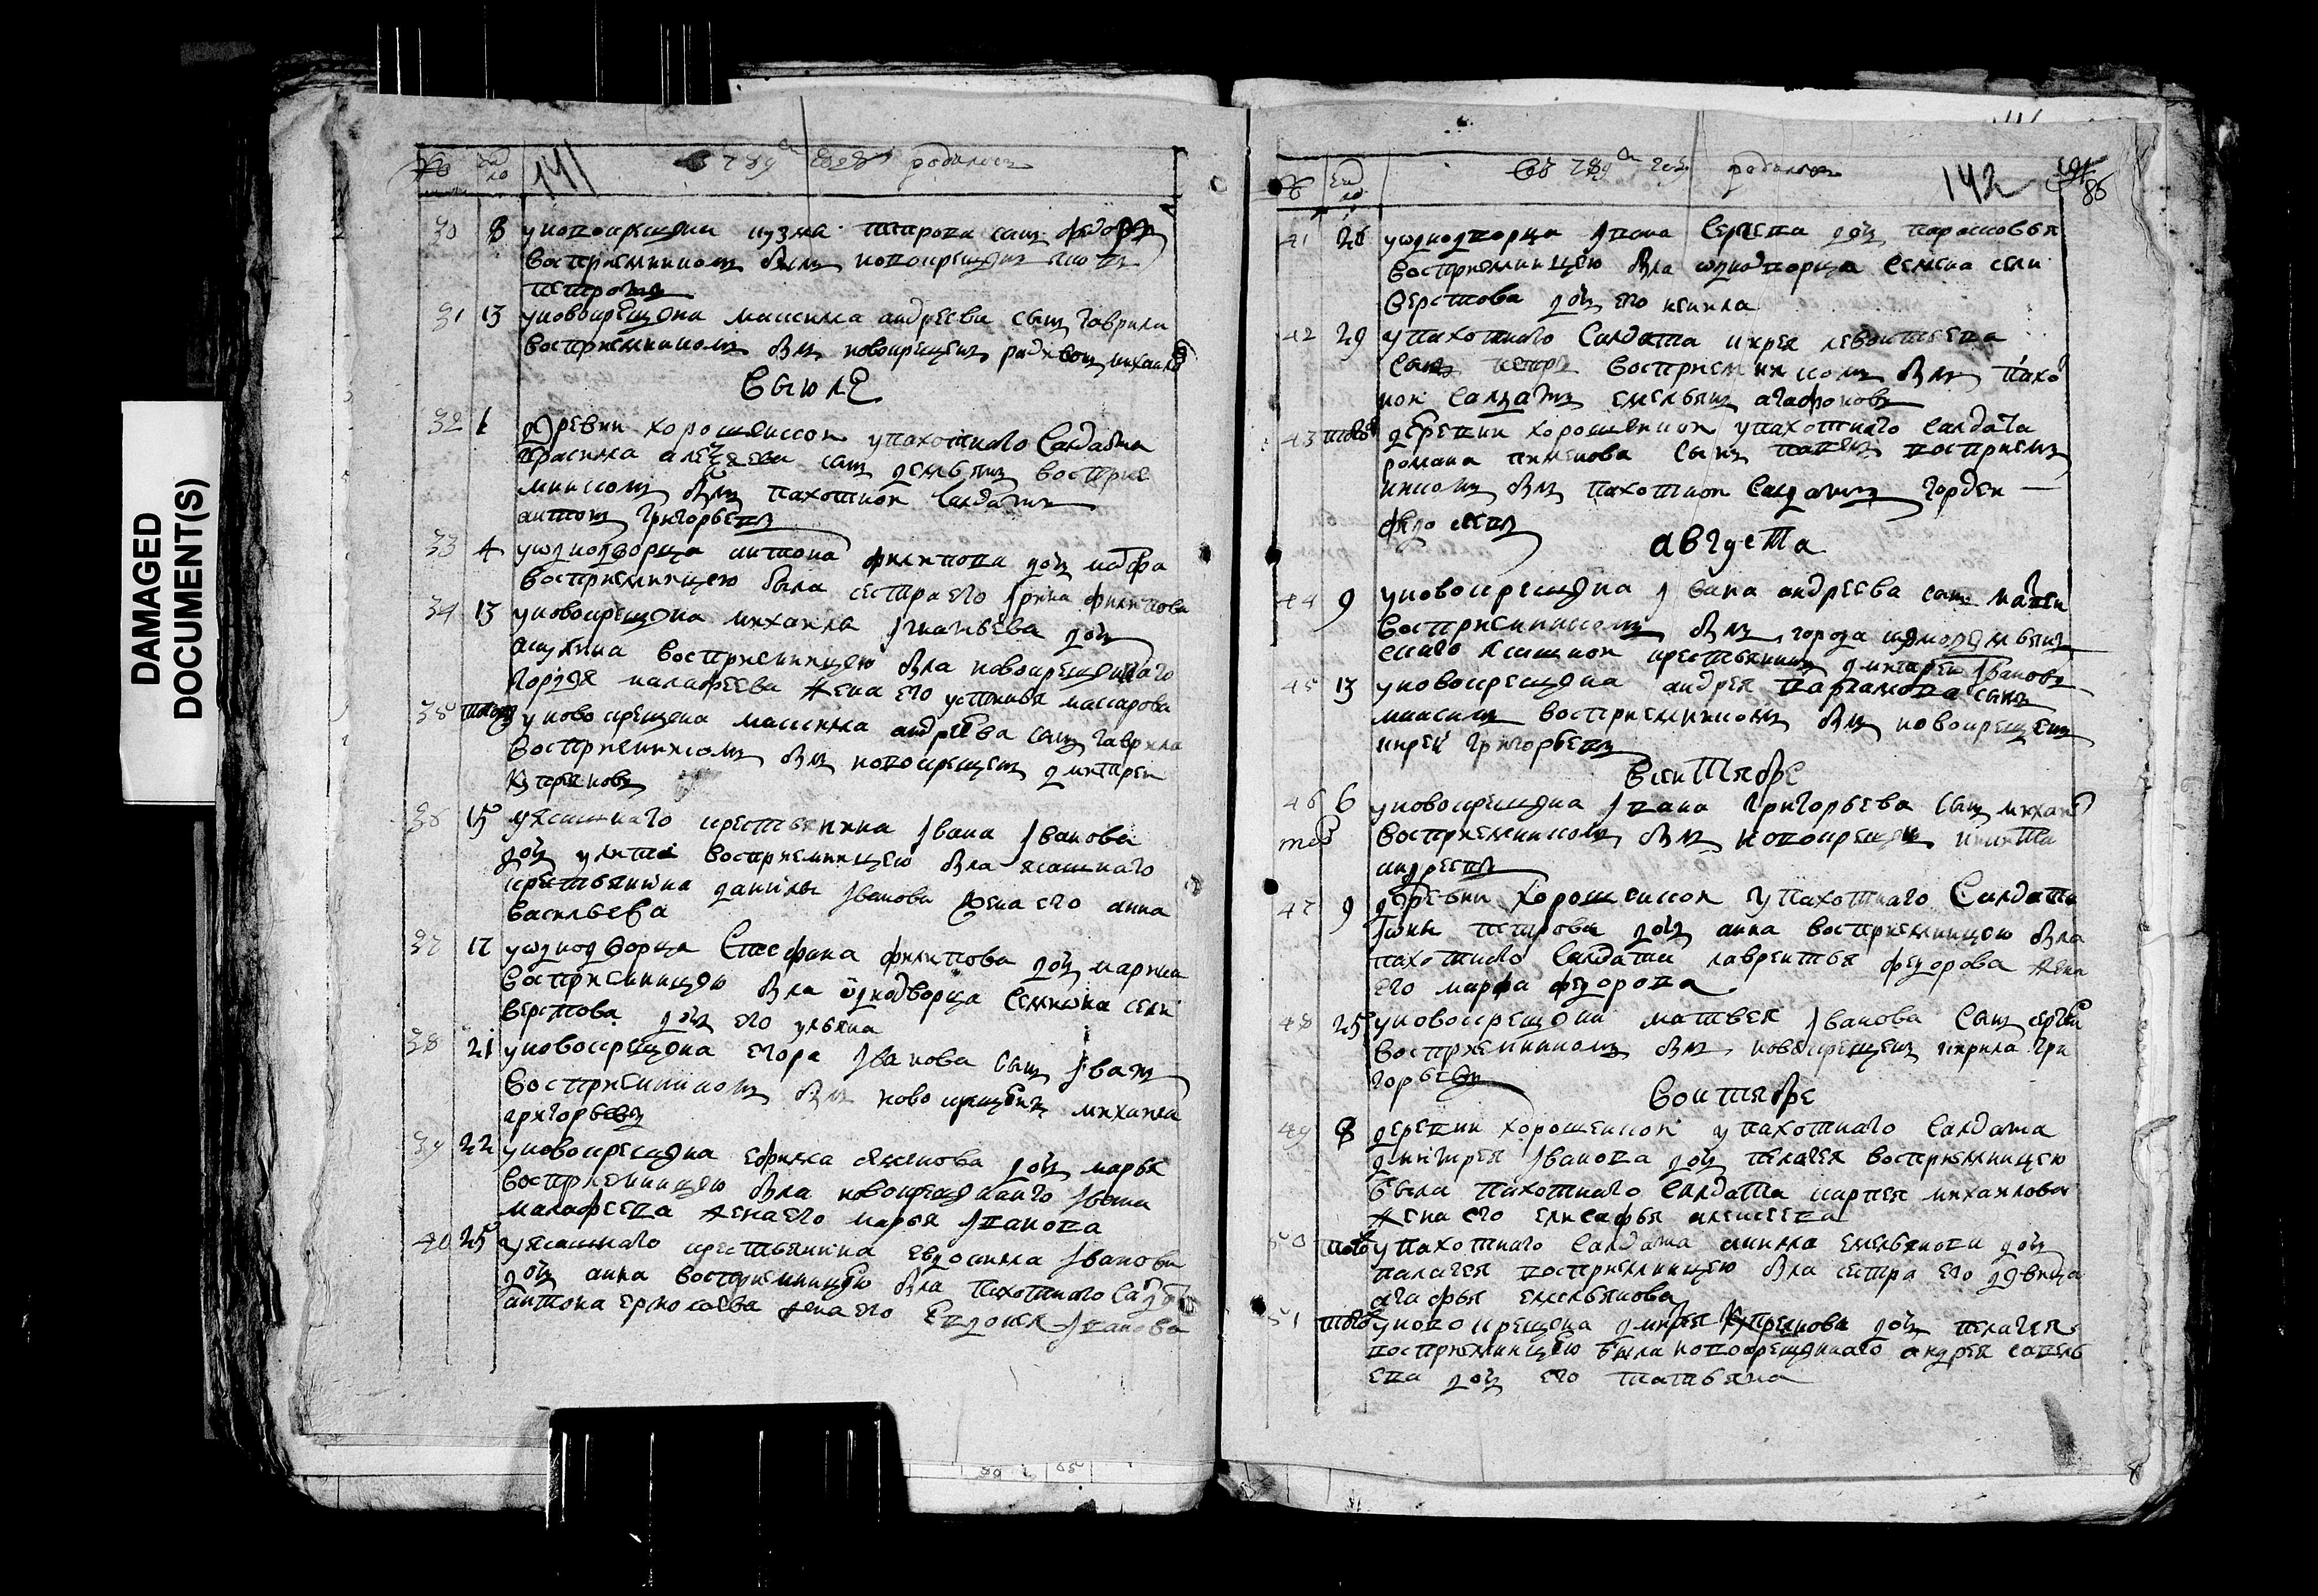 DAMAGED
DOCUMENT(S)
141
родилося
30 8 уновокрещена кузма петрова сынъ федоръ
восприемникомъ былъ новокрещенъ
петровъ
31 13 уновокрещена максима андреева сынъ гаврила
восприемникомъ былъ новокрещенъ родивонъ михаило
въ июле
32 1 деревни хорошенской упахотнаго салдата
герасима алексеева сынъ дементей восприе
мникомъ былъ пахотной салдатъ
антонъ григорьевъ
33 4 уоднодворца антона филипова дочь марфа
восприемницею была сестра его ірина филипова
34 13 уновокрещена михаила ігнатьева дочь
акулина восприемницею была новокрещенаго
гордея малафеева жена его устинья макарова
35 того уновокрещена максима андреева сынъ гаврила
восприемникомъ былъ новокрещенъ дмитрей
куприяновъ
36 15 уясашнаго крестьянина івана іванова
дочь улита восприемницею была ясашнаго
крестьянина данилы іванова жена его анна
васильева
37 17 уоднодворца стефана филипова дочь марина
восприемницею была однодворца семиона сели
верстова дочь его ульяна
38 21 уновокрещена егора іванова сынъ іванъ
восприемникомъ былъ новокрещенъ михаила
григорьевъ
39 22 уновокрещена ефима семенова дочь марья
восприемницею была новокрещенаго івана
малафеева жена его марья іванова
40 25 уясашнаго крестьянина евдокима іванова
дочь анна восприемницею была пахотнаго салдата
антона ермолаева жена его евдокея іванова
родилося 142 86
41 26 уоднодворца івана сергеева дочь парасковья
восприемницею была однодворца семена сели
верстова дочь его ненила
42 29 упахотнаго салдата кирея левонтьева
сынъ петръ восприемникомъ былъ пахо
ной салдатъ емельянъ агафоновъ
43 того деревни хорошенской упахотнаго салдата
романа пименова сынъ восприем
никомъ былъ пахотной салдатъ гордей
августа
44 9 уновокрещена івана андреева сынъ матвей
восприемникомъ былъ города
скаго ясашной крестьянинъ дмитрей івановъ
45 13 уновокрещена андрея сынъ
максимъ восприемникомъ былъ новокрещенъ
кирей григорьевъ
всентябре
46 6 уновокрещена івана григорьева сынъ михаила
восприемникомъ былъ новокрещенъ никита
андреевъ
47 9 деревни хорошенской упахотнаго салдата
іоны петрова дочь анна восприемницею была
пахотнаго салдата лаврентья федорова жена
его марфа федорова
48 25 уновокрещена матвея іванова сынъ сергей
восприемникомъ былъ новокрещенъ кирила гри
горьевъ
воктябре
49 8 деревни хорошенской упахотнаго салдата
дмитрея іванова дочь пелагея восприемницею
была пахотнаго салдата карпея михаилова
жена его елисафья алексеева
50 того упахотнаго салдата акима емельянова дочь
палагея восприемницею была сестра его девица
агафья емельянова
51 того уновокрещена дмитрея куприянова дочь пелагея
восприемницею была новокрещенаго андрея савель
ева дочь его татьяна